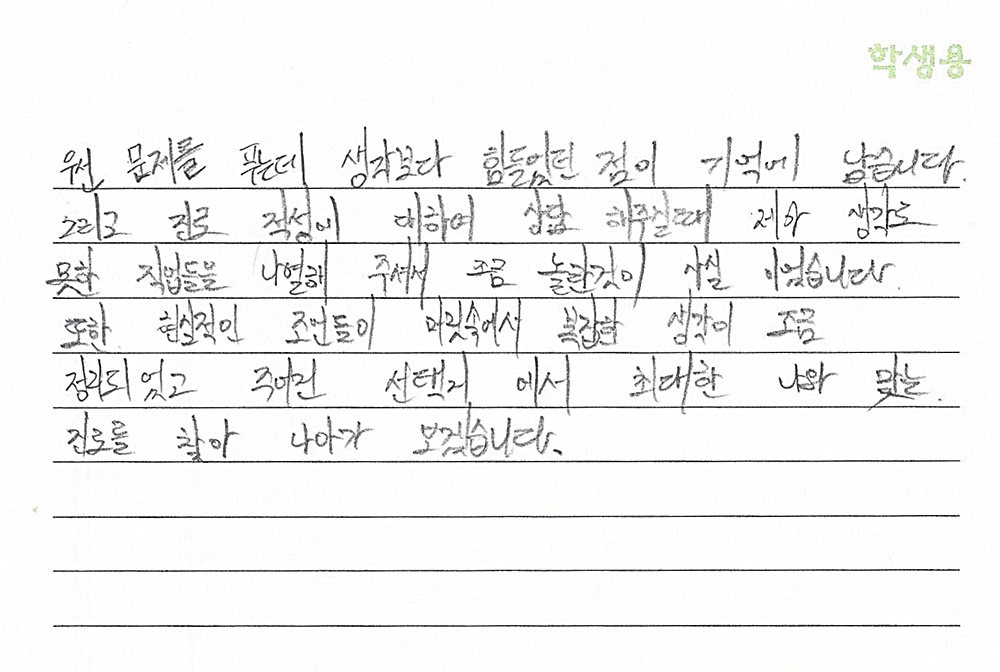 학생용
우선 문제를 푸는데 생각보다 힘들었던 점이 기억에 남습니다.
그리고 진로 적성이 대하여 상담 해주실때 제가 생각도
못한 직업들을 나열해 주셔서 조금 놀란것이 사실 이었습니다.
또한 현실적인 조언들이 머릿속에서 복잡한 생각이 조금
정리되었고 주어진 선택지 에서 최대한 나와 맞는
진로를 찾아 나아가 보겠습니다.